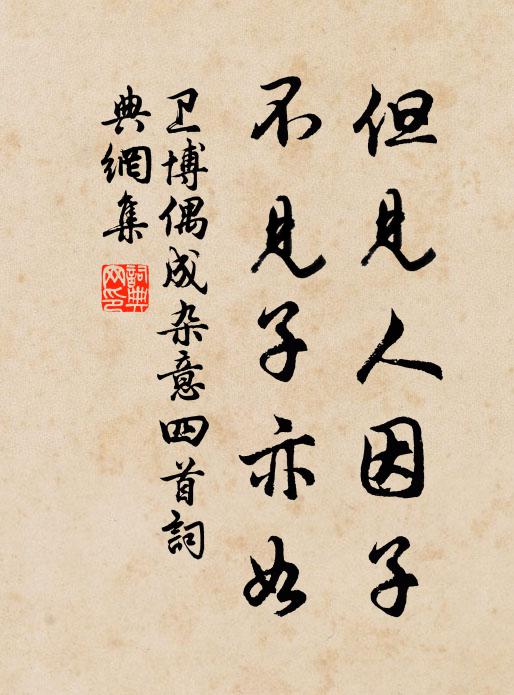 但见人因子
不见子亦如
卫博偶成杂意四首詞
典網集
詞典
网印